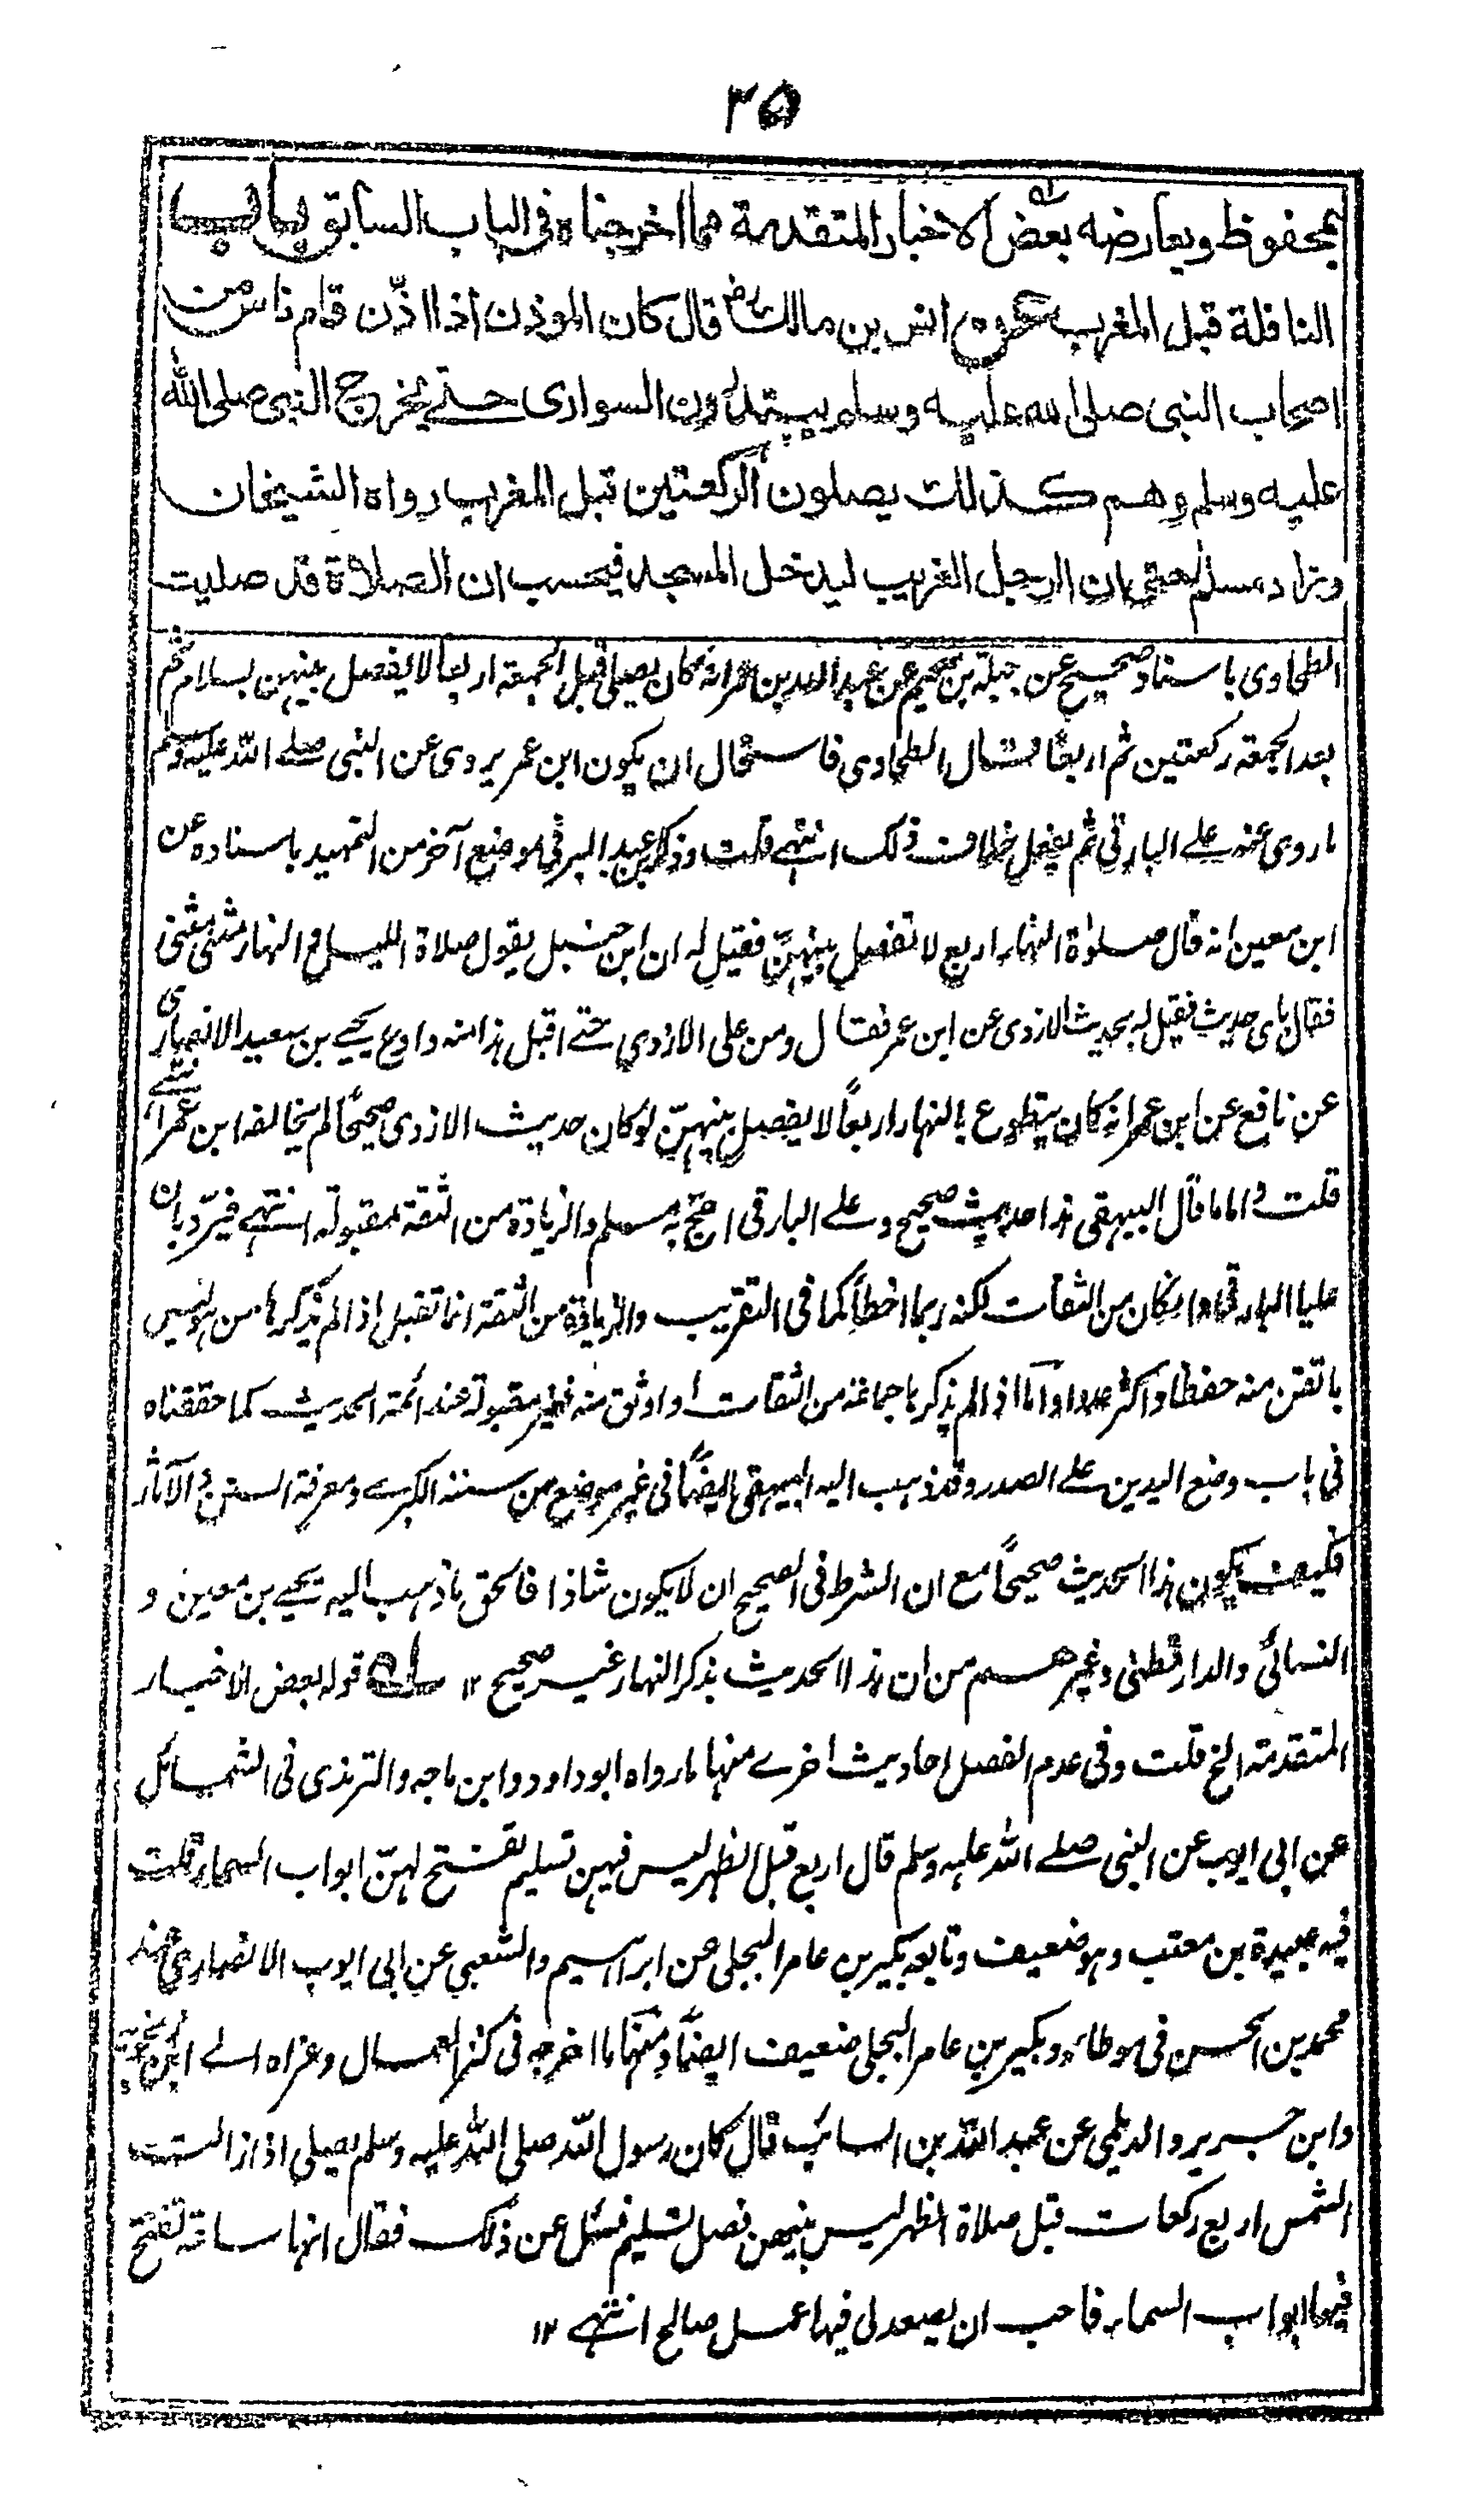 ٣٥
بمحفوظ ويعارضه بعض الاخبار المتقدمة مما اخرجناه فى الباب السابق باب
النافلة قبل المغرب عن انس بن مالك رض قال كان الموذن اذا اذّن قام ناس من
اصحاب النبى صلى الله عليه وسلم يبتدرون السوارى حتى يخرج النبى صلى الله
عليه وسلم وهم كذلك يصلون الركعتين قبل المغرب رواه الشيخان
وزاد مسلم حتى ان الرجل الغريب ليدخل المسجد فيحسب ان الصلاة قد صليت
الطحاوى باسناد صحيح عن جبلة بن سحيم عن عبد الله بن عمر انه كان يصلى قبل الجمعة اربعا لا يفصل بينهن بسلام ثم
بعد الجمعة ركعتين ثم اربعا قال الطحاوى فاستحال ان يكون ابن عمر يروى عن النبى صلے الله عليه وسلم
ما روى عنه على البارقى ثم يفعل خلاف ذلك انتهے قلت وذكر ابن عبد البر فى موضع آخر من التمهيد باسناده عن
ابن معين انه قال صلوٰة النهار اربع لا تفصل بينهنّ فقيل له ان ابن حنبل يقول صلاة الليل والنهار مثنى مثنى
فقال باى حديث فقيل له بحديث الازدى عن ابن عمر فقال ومن على الازدي حتے اقبل هذا منه وادع يحيے بن سعيد الانصارى
عن نافع عن ابن عمر انه كان يتطوع بالنهار اربعاً لا يفصل بينهنّ لو كان حديث الازدى صحيحًا لم يخالفه ابن عمر انتهے
قلت واما ما قال البيهقى هذا حديث صحيح وعلے البارقى احتج به مسلم والزيادة من الثقة مقبولة انتهے فيردّ بان
عليا البارقى وان كان من الثقات لكنه ربما اخطأ كما فى التقريب والزيادة من الثقة انما تقبل اذا لم يذكرها من هو ليس
باتقن منه حفظا واكثر عددا واما اذا لم يذكرها جماعة من الثقات او اوثق منه فغير مقبولة عند ائمة الحديث كما حققناه
فى باب وضع اليدين على الصدر وقد ذهب اليه البيهقى ايضًا فى غير موضع من سننه الكبرے ومعرفة السنن والآثار
فكيف يكون هذا الحديث صحيحاً مع ان الشرط فى الصحيح ان لا يكون شاذا فالحق ما ذهب اليه يحيے بن معين و
النسائى والدارقطنى وغيرهم من ان هذا الحديث بذكر النهار غير صحيح ١٢ قوله بعض الاخبار
المتقدمة الخ قلت وفى عدم الفصل احاديث اخرے منها ما رواه ابو داود وابن ماجه والترمذى فى الشمائل
عن ابى ايوب عن النبى صلے الله عليه وسلم قال اربع قبل الظهر ليس فيهن تسليم تفتح لهنّ ابواب السماء قلت
فيه عبيدة بن معتب وهو ضعيف وتابعه بكير بن عامر البجلى عن ابراهيم والشعبى عن ابى ايوب الانصارى عند
محمد بن الحسن فى موطائه وبكير بن عامر البجلى ضعيف ايضًا ومنها ما اخرجه فى كنز العمال وعزاه الے ابن
وابن جرير والديلمى عن عبد الله بن السائب قال كان رسول الله صلى الله عليه وسلم يصلى اذا زالت
الشمس اربع ركعات قبل صلاة الظهر ليس بينهن فصل بتسليم فسئل عن ذلك فقال انها ساعة تفتح
فيها ابواب السماء فاحب ان يصعد لى فيها عمل صالح انتهے ١٢